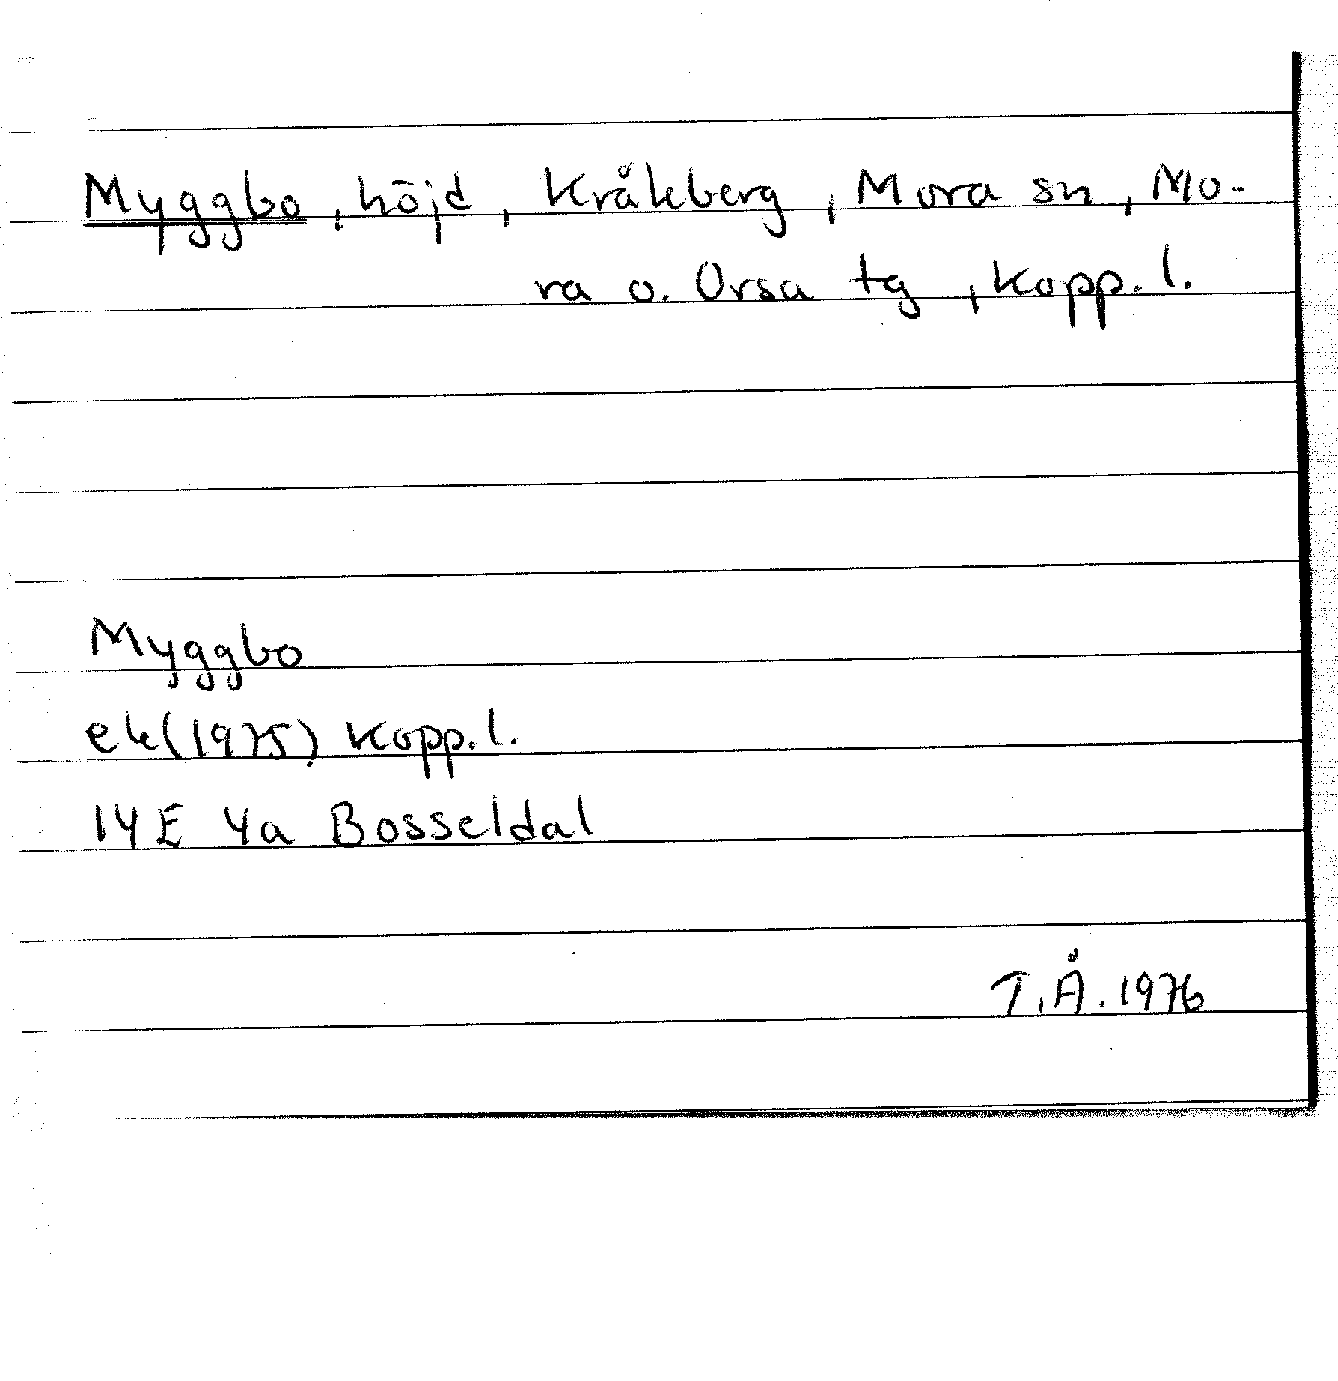 Myggbo, höjd, Kråkberg, Mora sn, Mo-
ra o. Orsa tg, Kopp. l.
Myggbo
ek (1975) Kopp. l.
14E 4a Bosseldal
T.Å. 1976